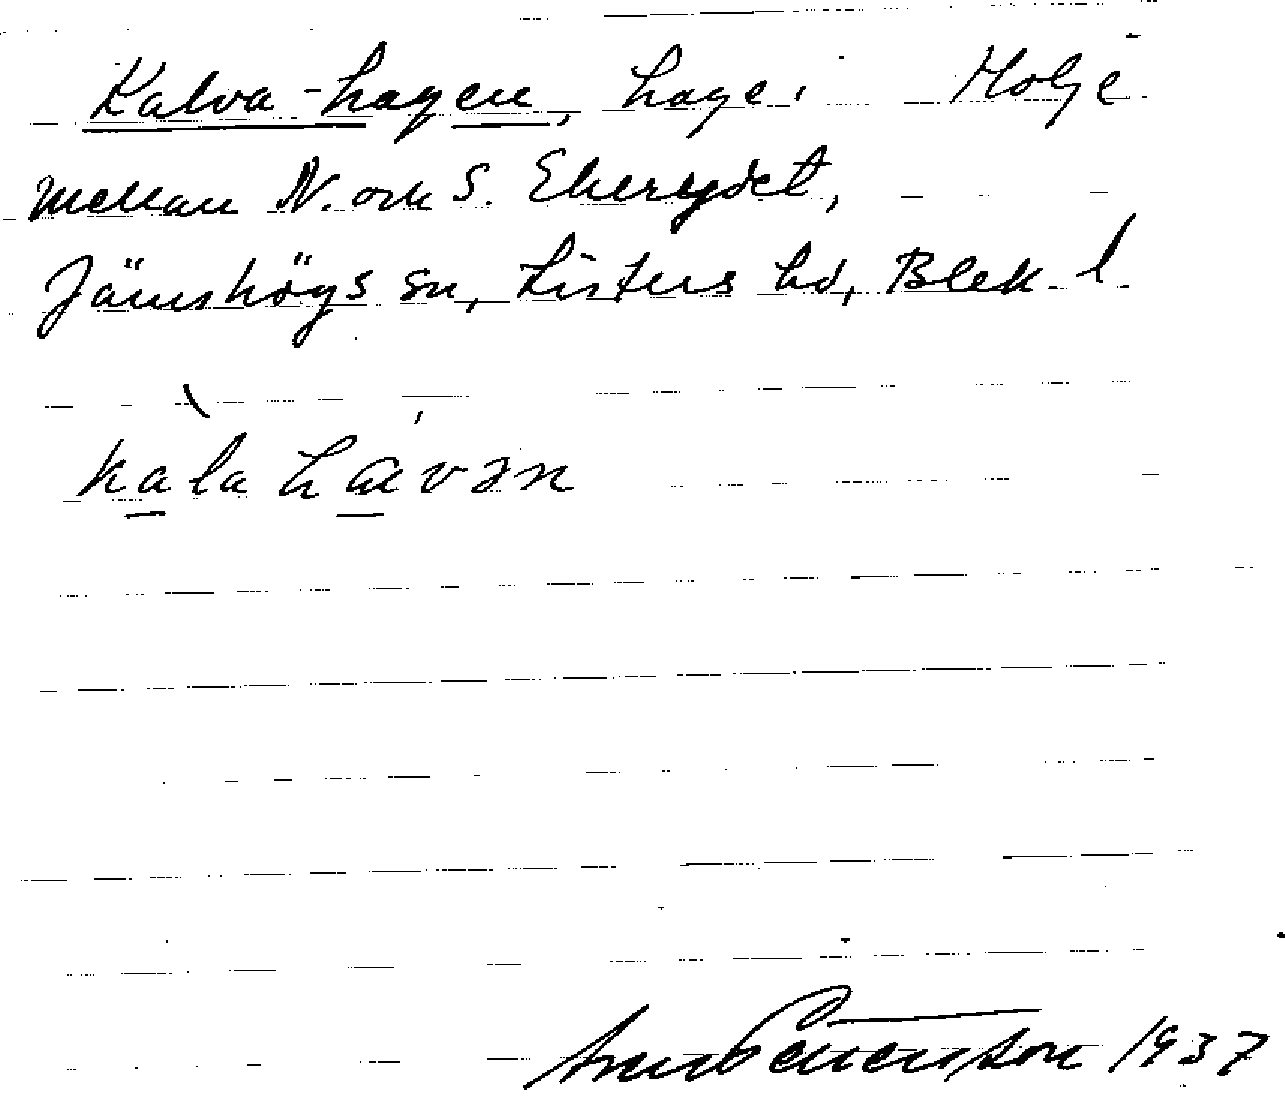 Kalva-hagen, hage i Holje
mellan N. och S. Ekerydet,
Jämshögs sn, Listers hd, Blek. l
kala havən
1937